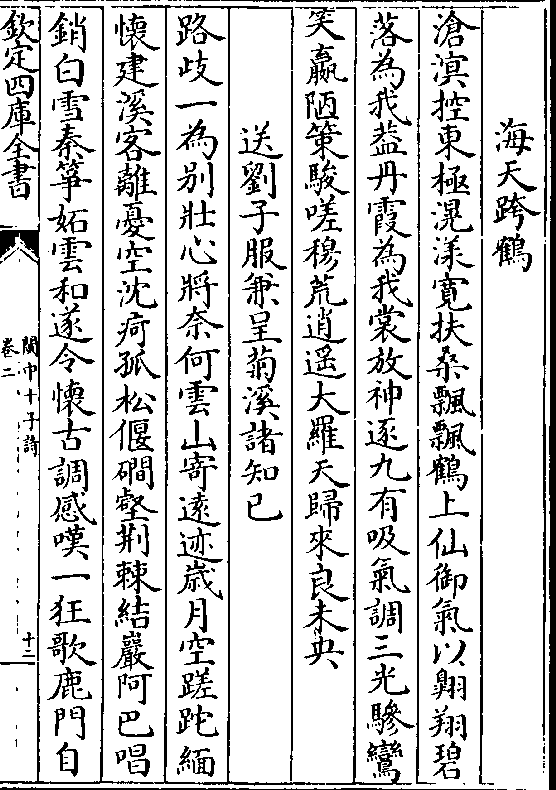 海天跨鶴
滄溟控東極滉漾寛扶桑飄飄鶴上仙御氣以翺翔碧
落為我葢丹霞為我裳放神逐九有吸氣調三光驂鸞
笑嬴陋策駿嗟穆荒逍遥大羅天歸來良未央
送劉子服兼呈菊溪諸知已
路歧一為别壯心將奈何雲山寄遠迹歲月空蹉跎緬
懐建溪客離憂空沈痾孤松偃磵壑荆棘結巖阿巴唱
銷白雪秦箏妬雲和遂令懐古調感嘆一狂歌鹿門自
欽定四庫全書
閩中十子詩
卷二
十二